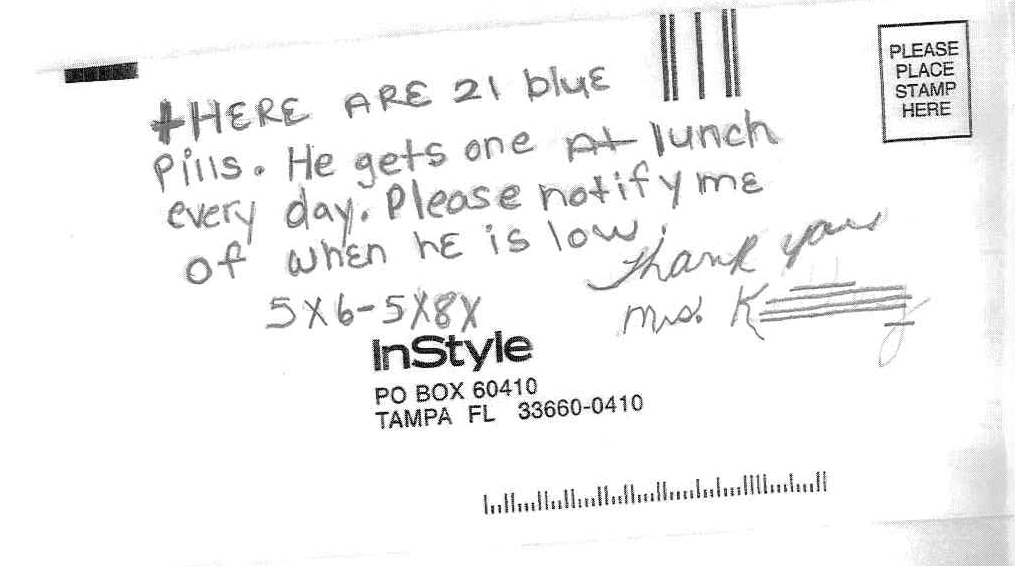 PLEASE
PLACE
STAMP
HERE
tHERE ARE 21 bluE
Pills. He gets one At lunch
every day. Please notify mE
of whEn hE is low.
Thank you
Mrs. K
5X6-5X8X
InStyle
PO BOX 60410
TAMPA FL 33660-0410